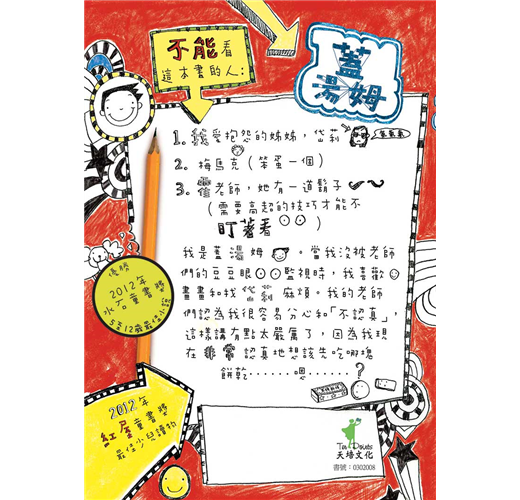 不能看
這本書的人：
蓋
湯姆
1. 我愛抱怨的姊姊，岱莉
2. 梅馬克（笨蛋一個）
3. 雷老師，她有一道鬍子
（需要高超的技巧才能不
盯著看）
我是蓋湯姆。當我沒被老師
們的豆豆眼監視時，我喜歡
畫畫和找岱莉麻煩。我的老師
們認為我很容易分心和「不認真」，
這樣講有點太嚴厲了，因為我現
在非常認真地想該先吃哪塊
餅乾………嗯……
?
優勝
2012年
水石童書獎
5至12歲最佳小說
2012年
紅屋童書獎
最佳少兒讀物
Ten Points
天培文化
書號：0302008